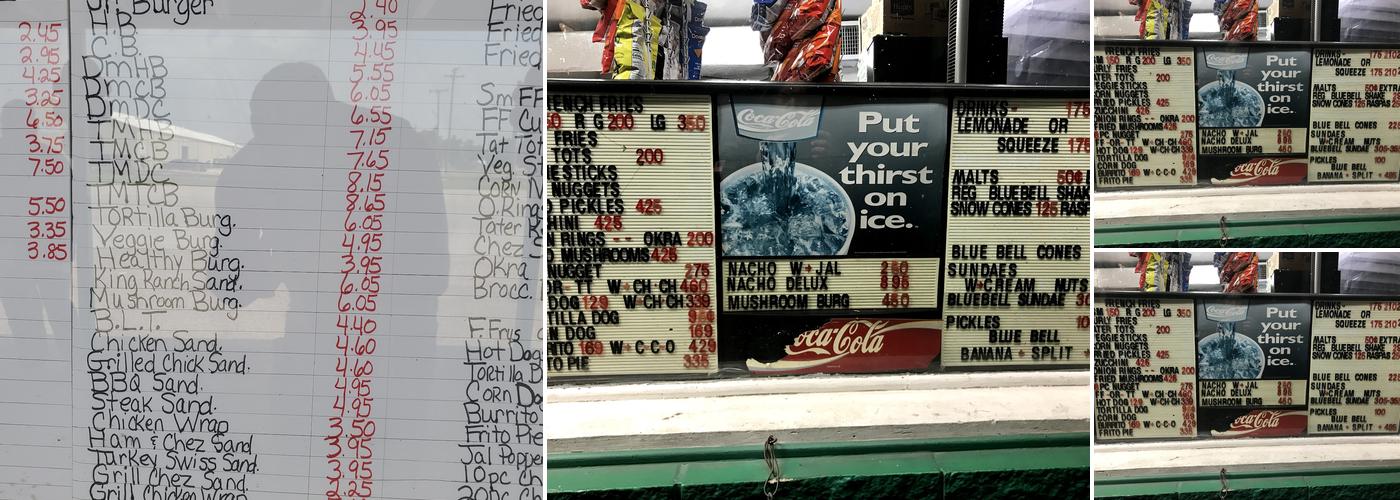 2.45
2.95
4.25
3.25
6.50
3.75
7.50
5.50
3.35
3.85
Jr. Burger
H.B. 3.95
C.B. 4.45
DmHB 5.55
DmcB 6.05
DmDC 6.55
TMHB 7.15
TMCB 7.65
TMDC 8.15
TMTCB 8.65
TORTilla Burg. 6.05
Veggie Burg. 4.95
Healthy Burg. 3.95
King Ranch Sand. 6.05
Mushroom Burg. 6.05
B.L.T. 4.40
Chicken Sand. 4.60
Grilled Chick Sand. 4.60
BBQ Sand. 4.95
Steak Sand. 4.95
Chicken Wrap 3.50
Ham & Chez Sand 3.95
Turkey Swiss Sand. 3.95
Grill Chez Sand. 2.25
Grill Chicken Wrap
Fried
Fried
Sm FF
FF Cu
Tat Tot
Veg. S
CORN N
O.King
Tater
Chez S
Okra
Brocc.
F.Frys
Hot Dogs
Tortilla
CORN Do
Burrito
Frito Pie
Jal Popper
10pc Ch
20pc Ch
FRENCH FRIES
R G 200 LG 350
FRIES
TOTS 200
IE STICKS
NUGGETS
D PICKLES 425
HINI 425
N RINGS -- OKRA 200
D MUSHROOMS 425
NUGGET 275
OR-TT W-CH-CH 460
DOG 129 W-CH CH 339
TILLA DOG
N DOG 169
ITO 169 W-C C O 429
TO PIE 335
Coca-Cola
Put
your
thirst
on
ice.
NACHO W-JAL
NACHO DELUX
MUSHROOM BURG 450
Coca-Cola
DRINKS- 175
LEMONADE OR
SQUEEZE 175
MALTS 50¢
REG BLUEBELL SHAK
SNOW CONES 125 RASP
BLUE BELL CONES
SUNDAES
W-CREAM NUTS
BLUEBELL SUNDAE
PICKLES
BLUE BELL
BANANA - SPLIT
FRENCH FRIES
M 150 R G 200 LG 350
URLY FRIES
TER TOTS 200
EGGIE STICKS
RN NUGGETS
RIED PICKLES 425
ZUCCHINI 425
ONION RINGS -- OKRA 200
FRIED MUSHROOMS 425
PC NUGGET 275
FF-OR-TT W-CH-CH 460
HOT DOG 129 W-CH CH 339
TORTILLA DOG
CORN DOG 169
BURRITO 169 W-C C O 429
FRITO PIE 335
Coca-Cola
Put
your
thirst
on
ice.
NACHO W-JAL
NACHO DELUX
MUSHROOM BURG 450
Coca-Cola
DRINKS-
LEMONADE OR
SQUEEZE 175
MALTS 50¢ EXTRA
REG BLUEBELL SHAKE
SNOW CONES 125 RASPAS
BLUE BELL CONES
SUNDAES
W-CREAM NUTS
BLUEBELL SUNDAE
PICKLES 100
BLUE BELL
BANANA - SPLIT
FRENCH FRIES
M 150 R G 200 LG 350
URLY FRIES
TER TOTS 200
EGGIE STICKS
RN NUGGETS
RIED PICKLES 425
ZUCCHINI 425
ONION RINGS -- OKRA 200
FRIED MUSHROOMS 425
PC NUGGET 275
FF-OR-TT W-CH-CH 460
HOT DOG 129 W-CH CH 339
TORTILLA DOG
CORN DOG 169
BURRITO 169 W-C C O 429
FRITO PIE 335
Coca-Cola
Put
your
thirst
on
ice.
NACHO W-JAL
NACHO DELUX
MUSHROOM BURG 450
Coca-Cola
DRINKS-
LEMONADE OR
SQUEEZE 175
MALTS 50¢ EXTRA
REG BLUEBELL SHAKE
SNOW CONES 125 RASPAS
BLUE BELL CONES
SUNDAES
W-CREAM NUTS
BLUEBELL SUNDAE
PICKLES 100
BLUE BELL
BANANA - SPLIT